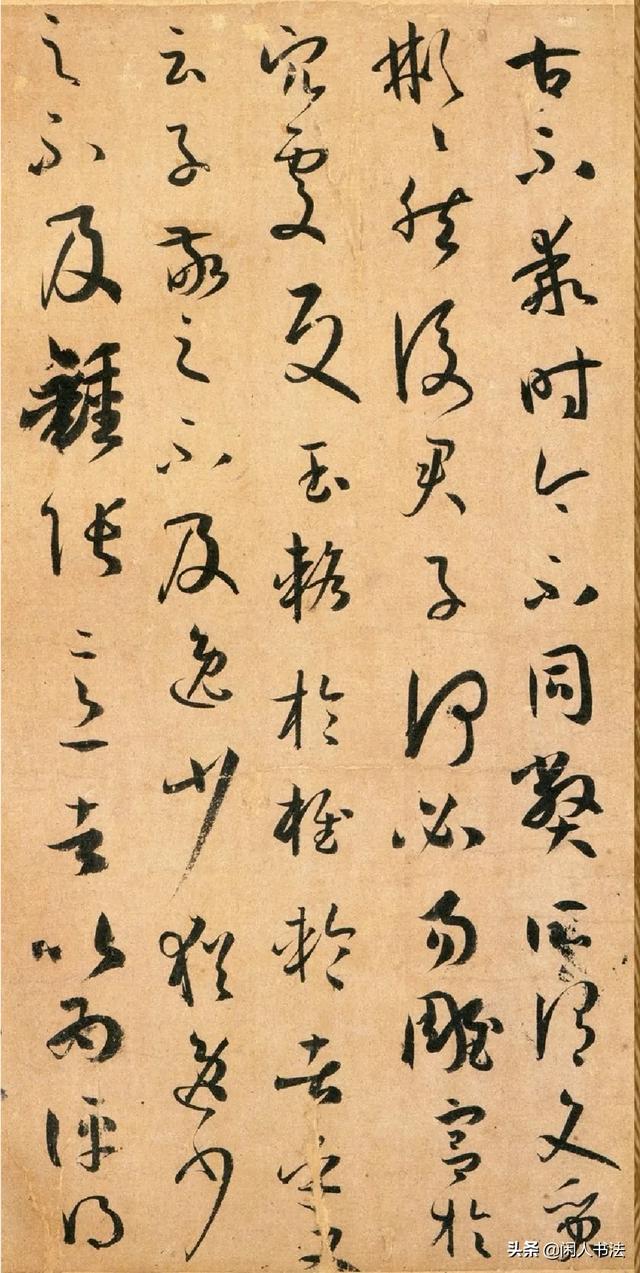 古不乖時今不同弊所謂文質
彬々然後君子何必易雕宮於
穴處反玉輅於椎輪者乎又
云子敬之不及逸少猶逸少
之不及鍾張意者以為評得
头条 @闲人书法